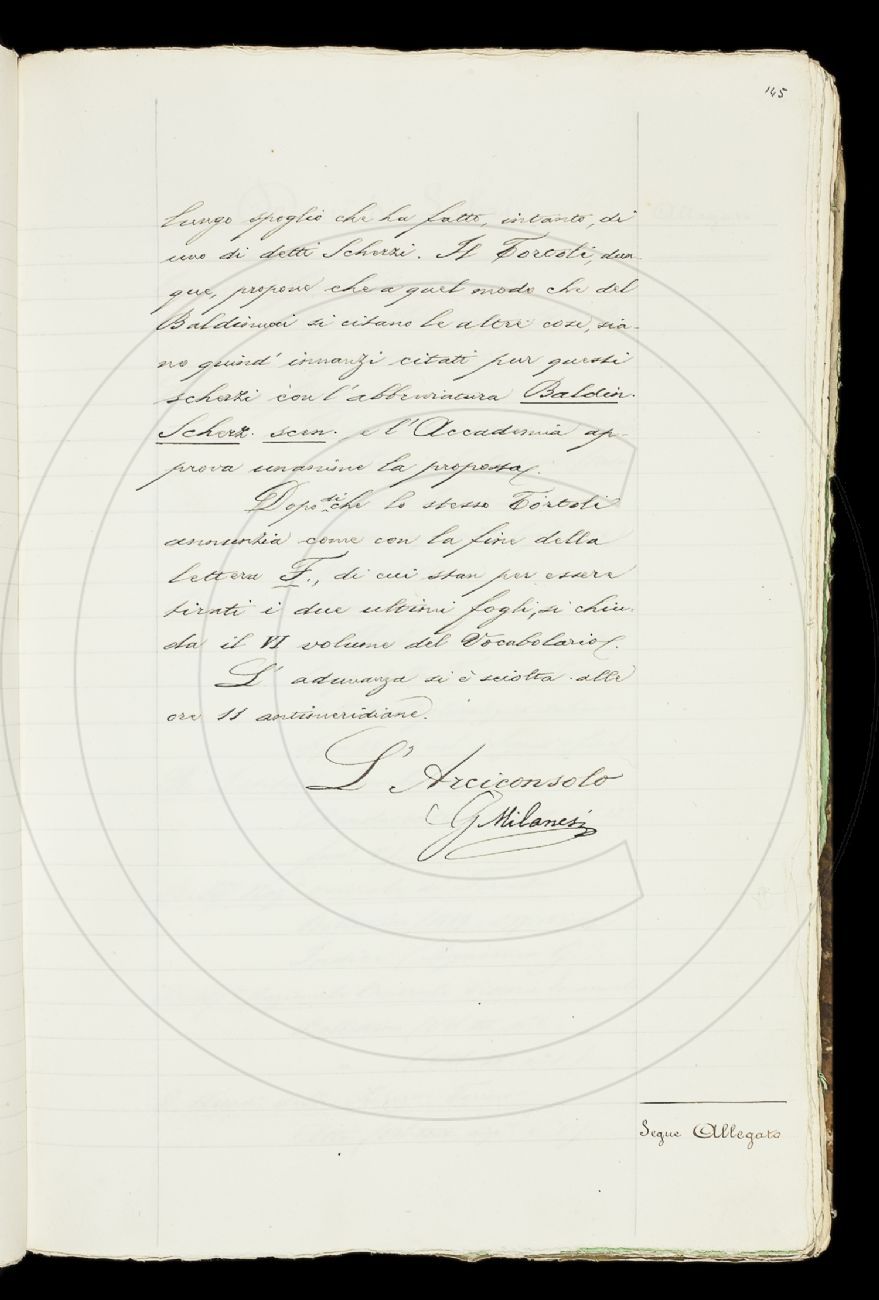 145
lungo spoglio che ha fatto, intanto, di
uno di detti Scherzi. Il Tortoli, dun-
que, propone che a quel modo che del
Baldinucci si citano le altre cose, sia-
no quind' innanzi citati pur questi
scherzi con l'abbreviatura Baldin.
Scherz. scen. e l'Accademia ap-
prova unanime la proposta.
Dopo di che lo stesso Tortoli
annunzia come con la fine della
lettera F., di cui stan per essere
tirati i due ultimi fogli, si chiu-
da il VI volume del Vocabolario.
L'adunanza si è sciolta alle
ore 11 antimeridiane.
L'Arciconsolo
G Milanesi
Segue Allegato